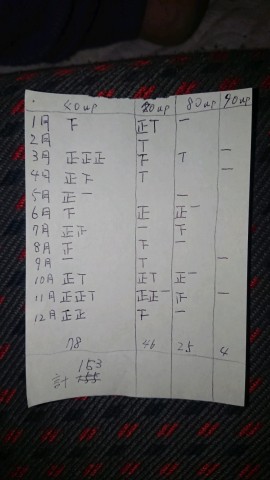 20up 80up 90up
1月 下 正丅 一
2月 丅
3月 正正正 下 丅 一
4月 正下 丅 一
5月 正一 一
6月 下 正 正一
7月 正下 一 下
8月 正 下 一
9月 一 丅 一
10月 正丅 正丅 正一
11月 正正丅 正正一 正 一
12月 正正 下 一
78 46 25 4
153
計 155